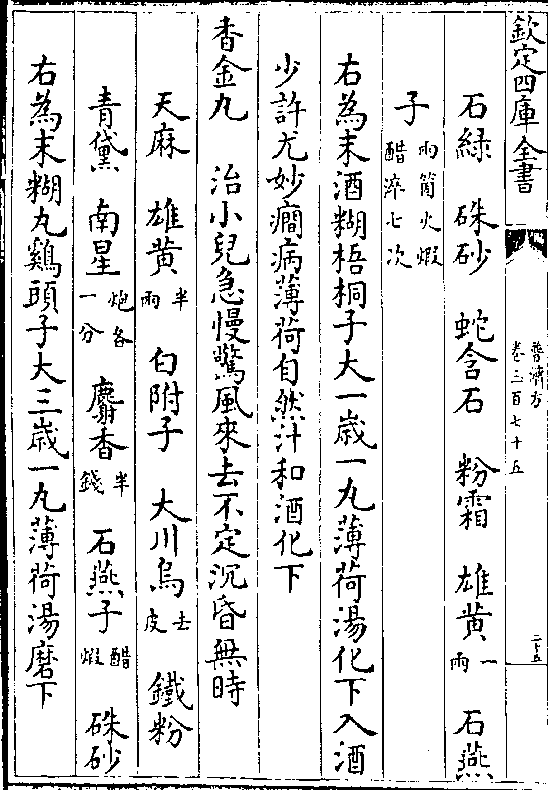 欽定四庫全書
普濟方
卷三百七十五
二十五
石綠 硃砂 蛇含石 粉霜 雄黃一兩 石燕
子兩箇火煆醋淬七次
右為末酒糊梧桐子大一歲一丸薄荷湯化下入酒
少許尤妙癎病薄荷自然汁和酒化下
香金丸 治小兒急慢驚風來去不定沉昏無時
天麻 雄黃半兩 白附子 大川烏去皮 鐵粉
青黛 南星炮各一分 麝香半錢 石燕子醋煆 硃砂
右為末糊丸鷄頭子大三歲一丸薄荷湯磨下